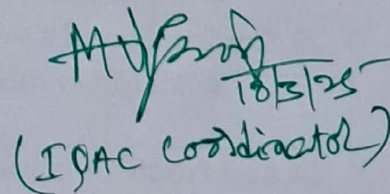 18/3/25
(IQAC Coordinator)